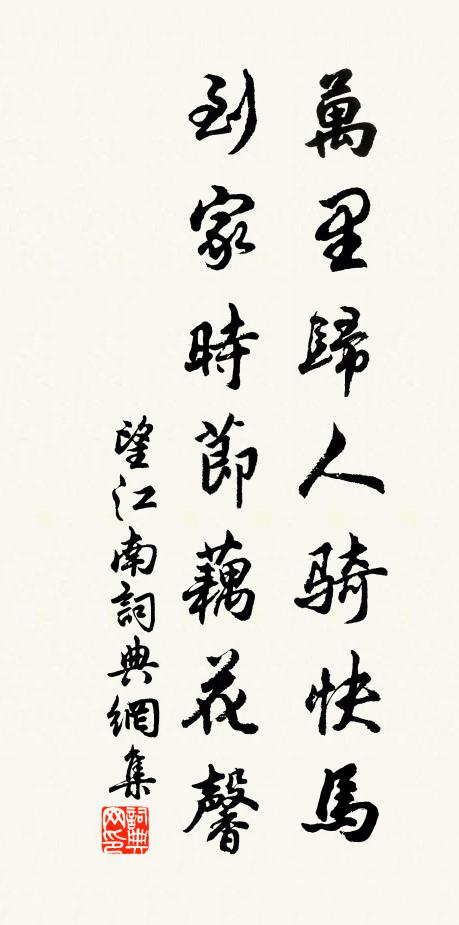 萬里歸人骑快馬
到家時節藕花馨
望江南詞典網集
詞典
网印